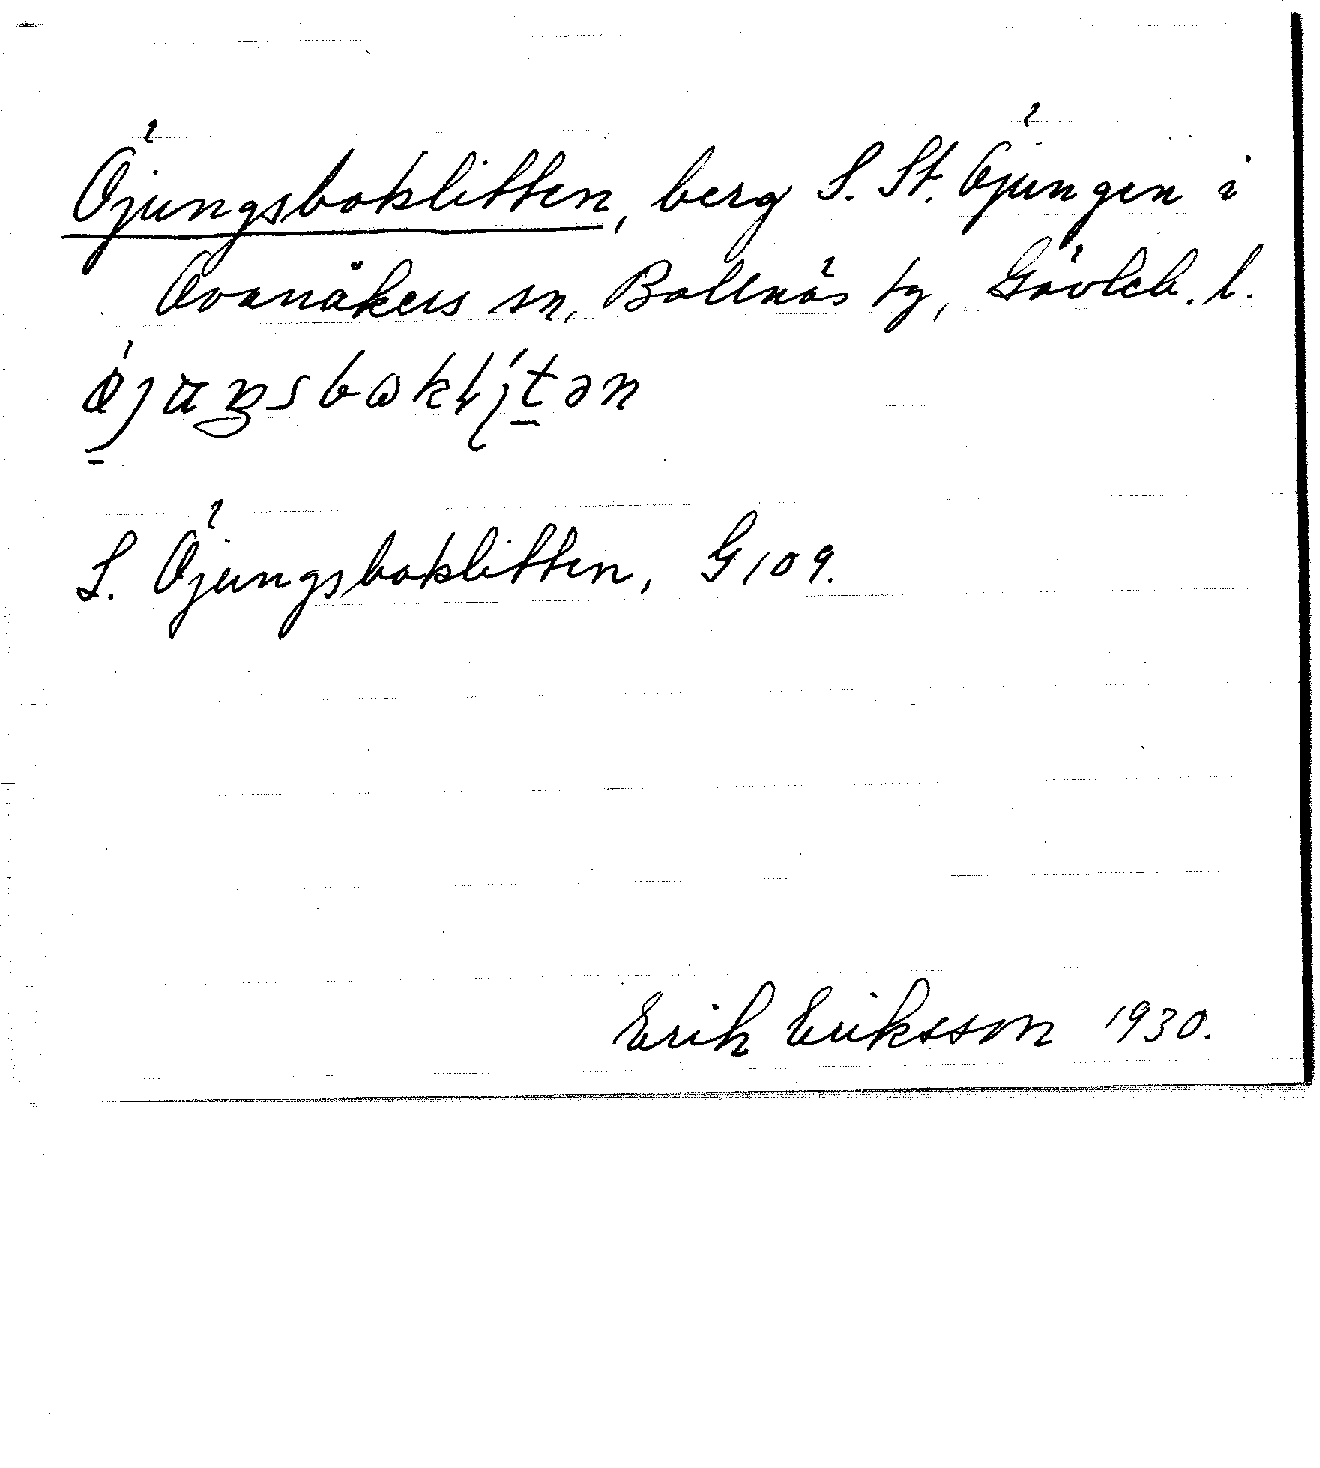 Öjungsboklitten, berg S. St. Öjungen i
Ovanåkers sn, Bollnäs tg, Gävleb. l.
S. Öjungsboklitten, G 109.
Erik Eriksson 1930.